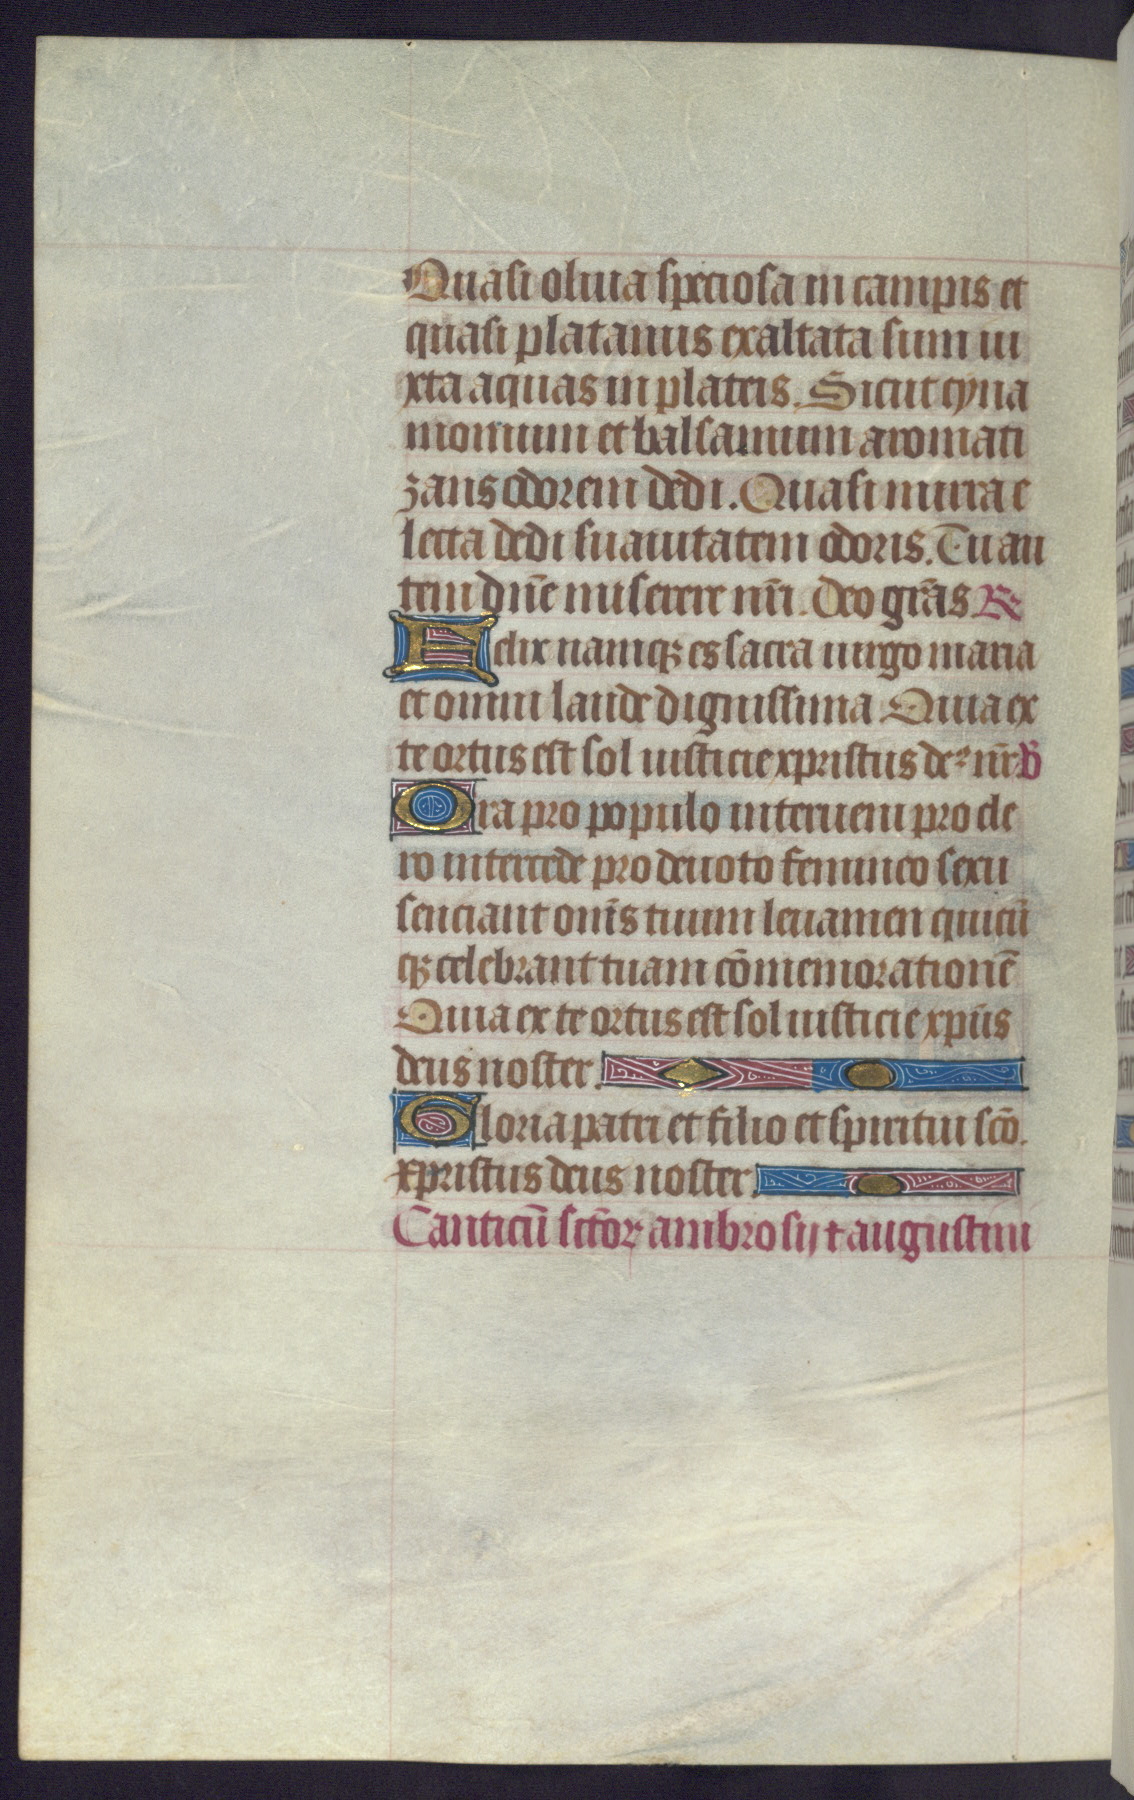 Quasi oliua speciosa in campis et
quasi platanus exaltata sum iu
xta aquas in plateis. Sicut cyna
momum et balsamum aromati
zans odorem dedi. Quasi mirra e
lecta dedi suauitatem odoris. Tu au
tem dn̄e miserere nr̄i. Deo gr̄as R
Felix namqꝫ es sacra uirgo maria
et omni laude dignissima Quia ex
te ortus est sol iusticie xpristus deꝰ nr̄ V̄
Ora pro populo interueni pro cle
ro intercede pro deuoto femineo sexu
senciant om̄s tuum leuamen quicū
qꝫ celebrant tuam cōmemorationē
Quia ex te ortus est sol iusticie xpūs
deus noster.
Gloria patri et filio et spiritui scō.
xpristus deus noster.
Canticū sctōꝝ ambrosij ⁊ augustini